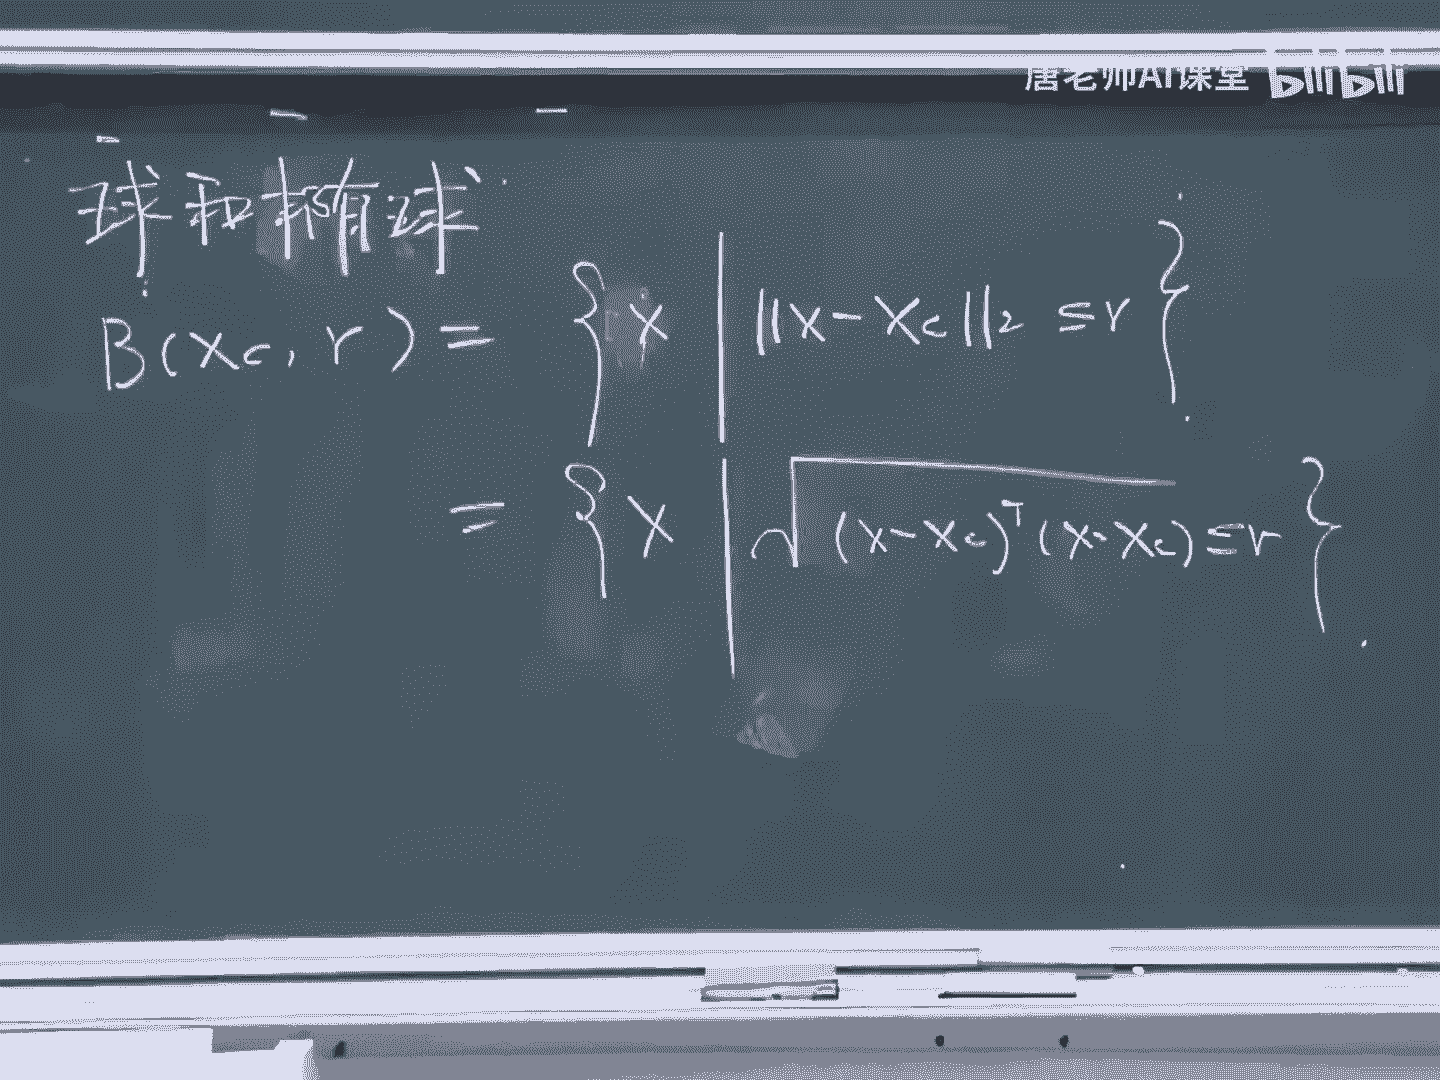 唐老师AI课堂 bilibili
球和椭球
B(Xc, r) = { X | ||X - Xc||₂ ≤ r }
= { X | √(X-Xc)ᵀ(X-Xc) ≤ r }